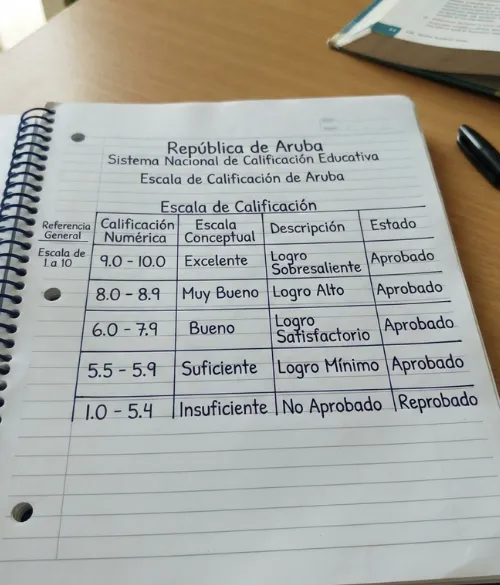 República de Aruba
Sistema Nacional de Calificación Educativa
Escala de Calificación de Aruba
Escala de Calificación
Referencia General | Calificación Numérica | Escala Conceptual | Descripción | Estado
Escala de 1 a 10 | 9.0 - 10.0 | Excelente | Logro Sobresaliente | Aprobado
8.0 - 8.9 | Muy Bueno | Logro Alto | Aprobado
6.0 - 7.9 | Bueno | Logro Satisfactorio | Aprobado
5.5 - 5.9 | Suficiente | Logro Mínimo | Aprobado
1.0 - 5.4 | Insuficiente | No Aprobado | Reprobado